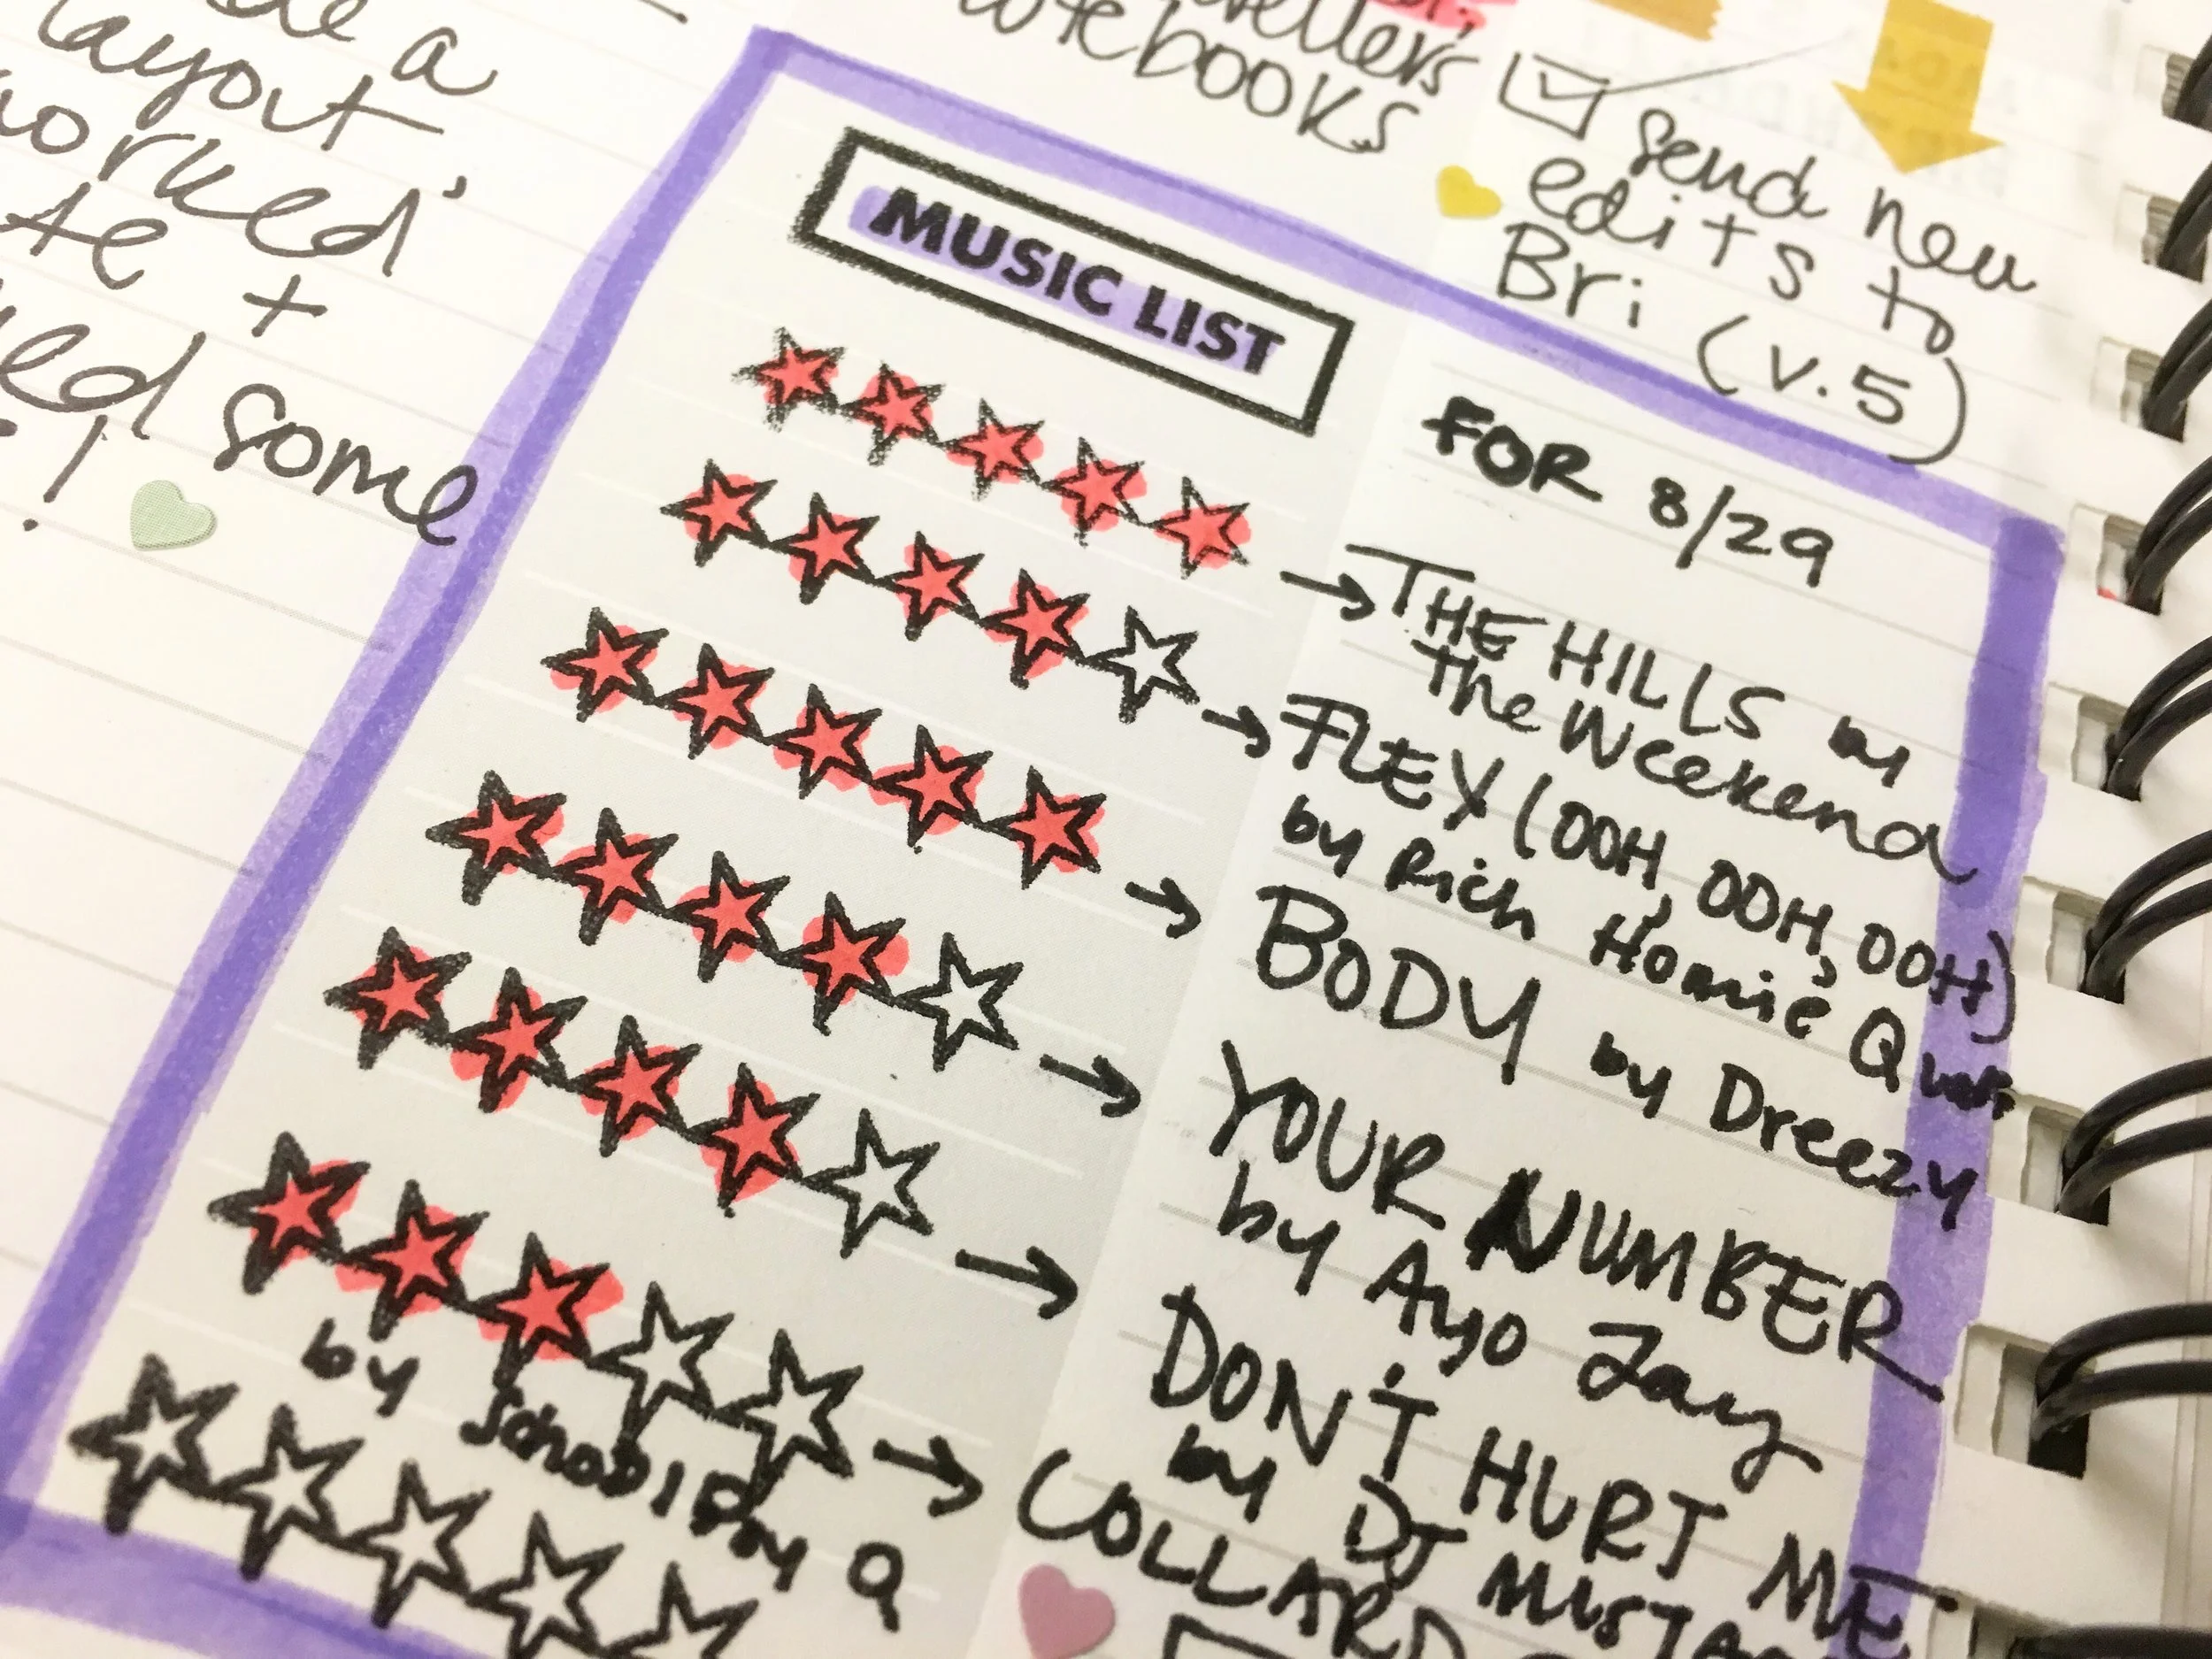 a
layout,
worked
some
!
notebooks
send new
edits to
Bri (v.5)
MUSIC LIST
FOR 8/29
→ THE HILLS by
The Weekend
→ FLEX (OOH, OOH, OOH)
by Rich Homie Quan
→ BODY by Dreezy
→ YOUR NUMBER
by Ayo Jay
→ DON'T HURT ME
by DJ MUSTA
→ COLLARD
by School Boy Q